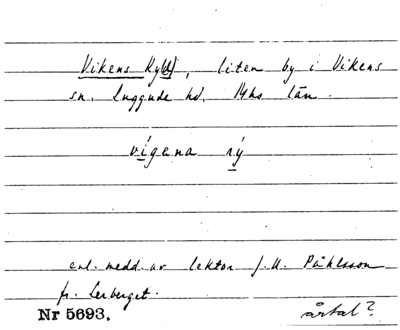 Vikens Ry, liten by i Vikens
sn. Luggude hd. Mhs län.
vígana rý
enl. medd. av lektor J. U. Påhlsson
fr. Lerberget.
Nr 5693.
årtal?